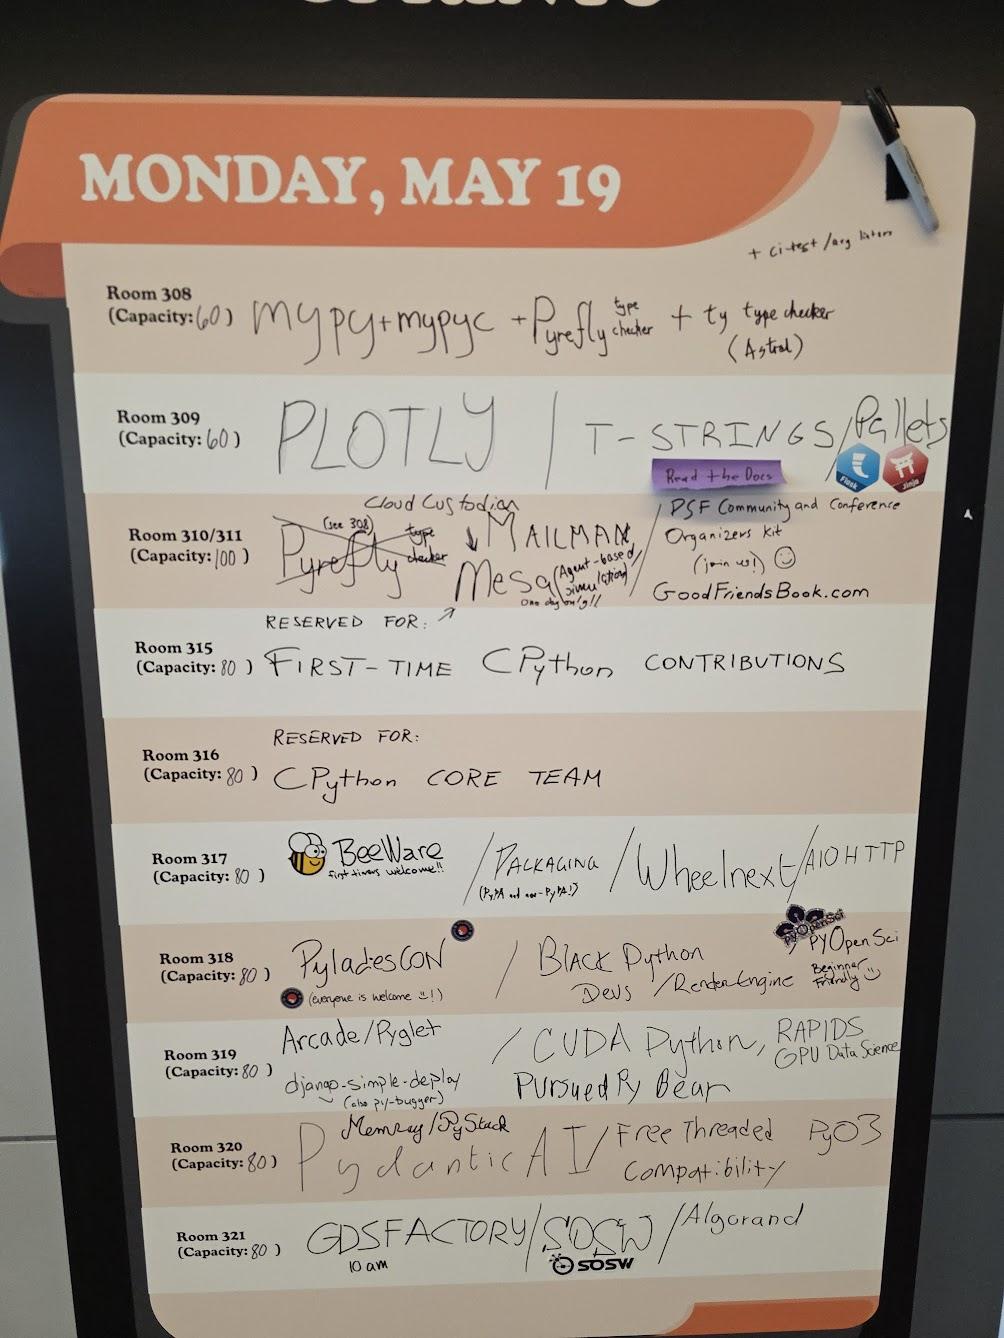 MONDAY, MAY 19
+ ci-test/arg linters
Room 308
(Capacity: 60)
mypy + mypyc + Pyrefly type checker + ty type checker
(Astral)
Room 309
(Capacity: 60)
PLOTLY / T-STRINGS / Pallets
Read the Docs
Flask
Jinja
Room 310/311
(Capacity: 100)
Cloud Custodian
Pyrefly type checker
(see 308)
↓ MAILMAN /
Mesa (Agent-based simulation)
One day only!!
PSF Community and Conference
Organizers Kit
(join us!) ☺
GoodFriendsBook.com
RESERVED FOR: ↗
Room 315
(Capacity: 80)
FIRST-TIME CPython CONTRIBUTIONS
Room 316
(Capacity: 80)
RESERVED FOR:
CPython CORE TEAM
Room 317
(Capacity: 80)
BeeWare
first timers welcome!!
/ PACKAGING / Wheelnext / AIOHTTP
(PyPA and non-PyPA!)
Room 318
(Capacity: 80)
PyladiesCON
(everyone is welcome !)
/ BlACK Python
Devs / RenderEngine
pyOpenSci
/ PYOpenSci
Beginner Friendly
Room 319
(Capacity: 80)
Arcade/Pyglet
django-simple-deploy
(also py-bugger)
/ CUDA Python, RAPIDS
GPU Data Science
PursuedPyBear
Room 320
(Capacity: 80)
Memray/PyStack
Pydantic AI / Free Threaded
Compatibility
PyO3
Room 321
(Capacity: 80)
GDSFACTORY / SOSW / Algorand
10 am
SOSW